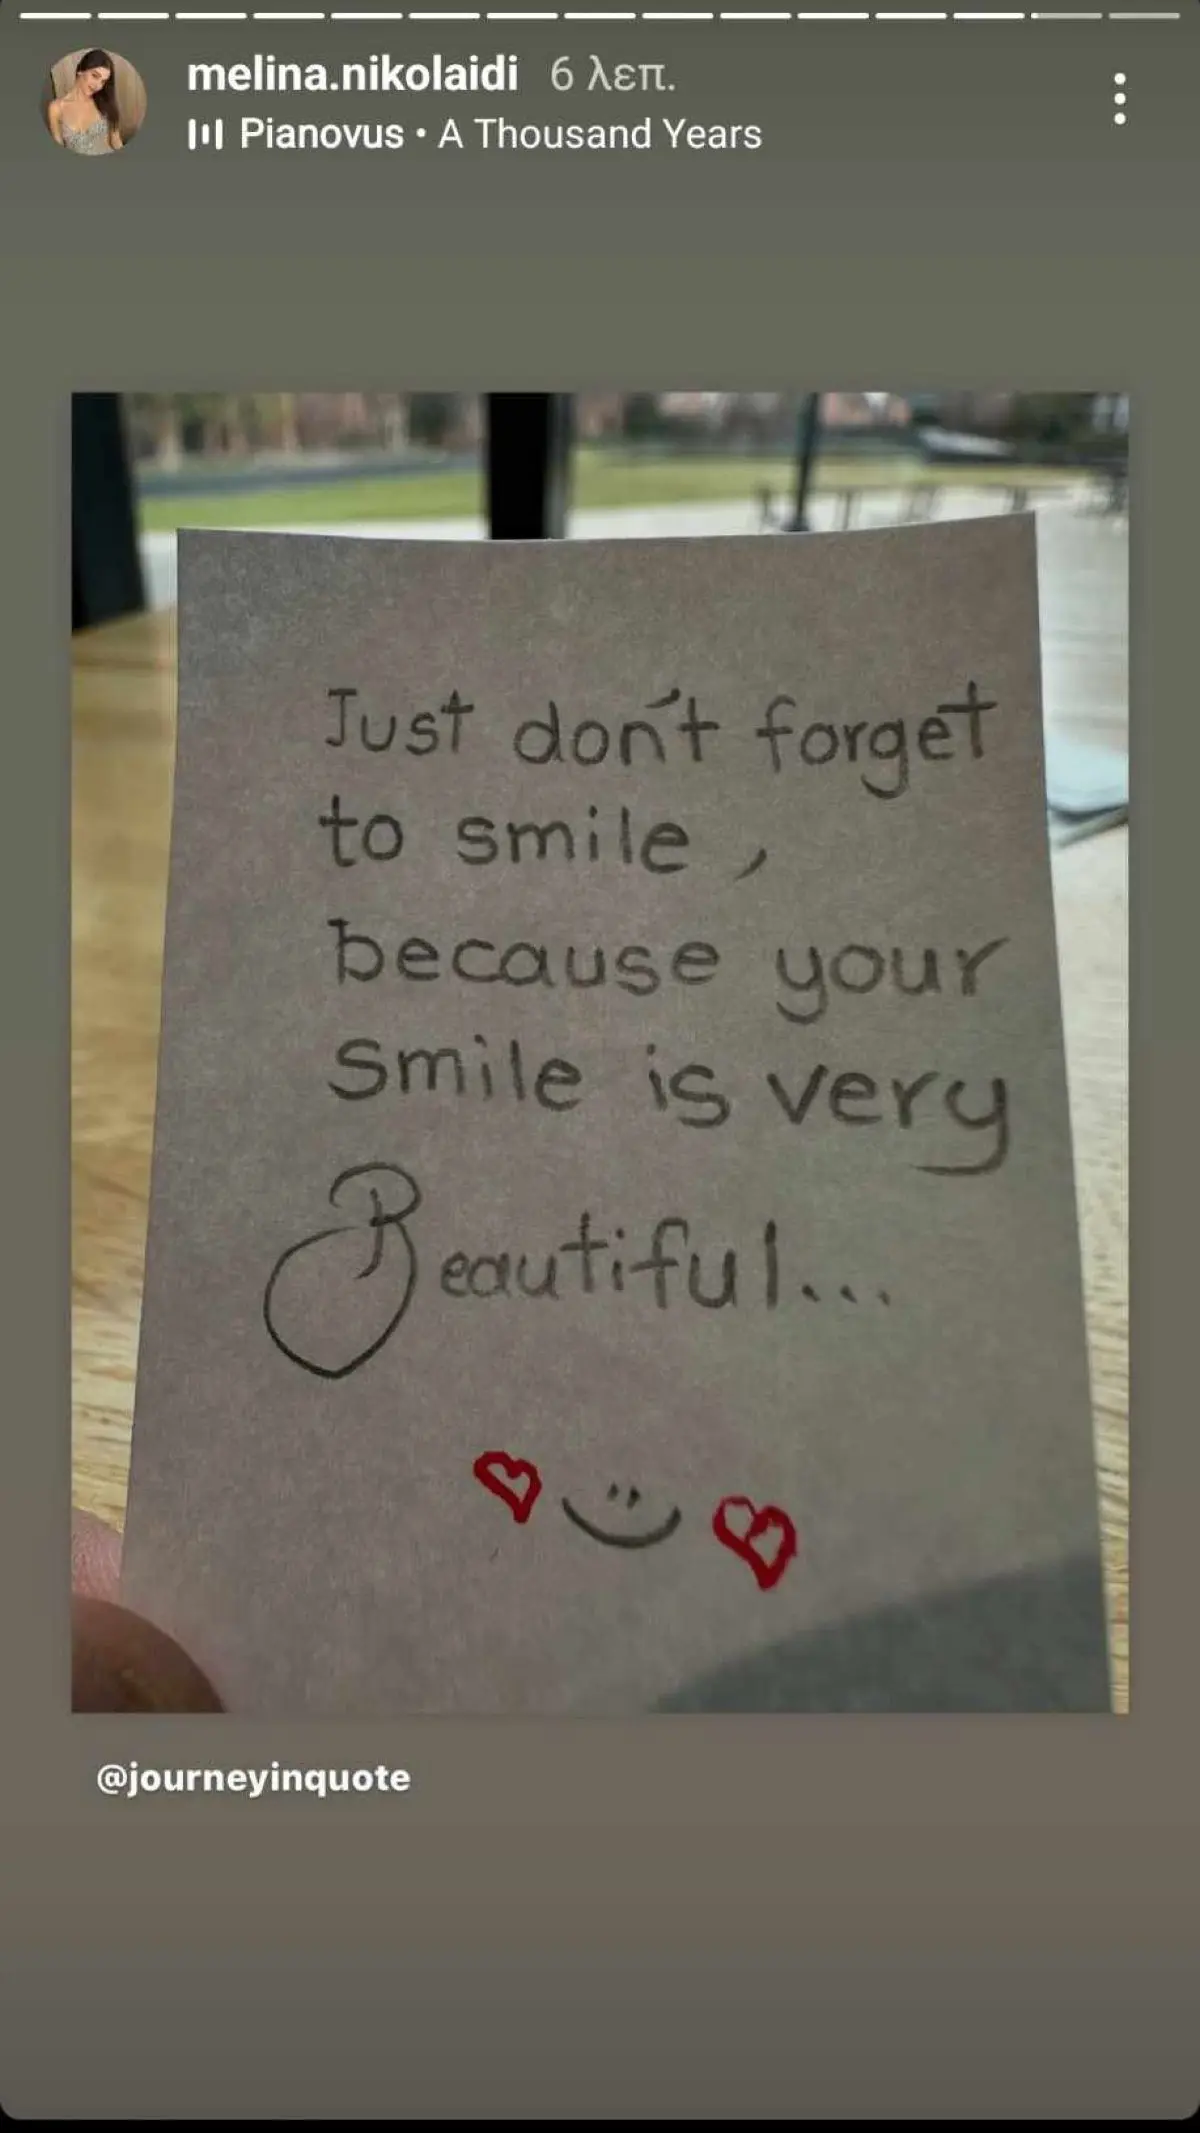 melina.nikolaidi 6 λεπ.
Pianovus • A Thousand Years
Just don't forget
to smile,
because your
smile is very
Beautiful...
@journeyinquote